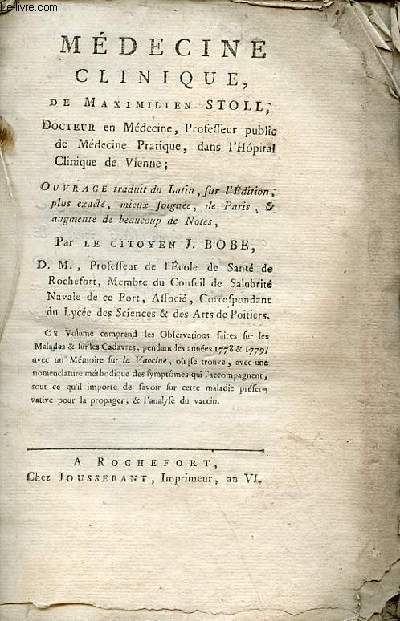 Le-livre.com
MÉDECINE
CLINIQUE,
DE MAXIMILIEN STOLL,
DOCTEUR en Médecine, Profeſſeur public
de Médecine Pratique, dans l'Hôpital
Clinique de Vienne;
OUVRAGE traduit du Latin, ſur l'Édition,
plus exacte, mieux ſoignée, de Paris, &
augmenté de beaucoup de Notes,
Par LE CITOYEN J. BOBE,
D. M., Profeſſeur de l'École de Santé de
Rochefort, Membre du Conſeil de Salubrité
Navale de ce Port, Aſſocié, Correſpondant
du Lycée des Sciences & des Arts de Poitiers.
CE Volume comprend les Obſervations faites ſur les
Malades & ſur les Cadavres, pendant les années 1778 & 1779;
avec un Mémoire ſur la Vaccine, où ſe trouve, avec une
nomenclature méthodique des ſymptômes qui l'accompagnent,
tout ce qu'il importe de ſavoir ſur cette maladie préſer-
vative pour la propager, & l'analyſe du vaccin.
A ROCHEFORT,
Chez JOUSSERANT, Imprimeur, an VI.